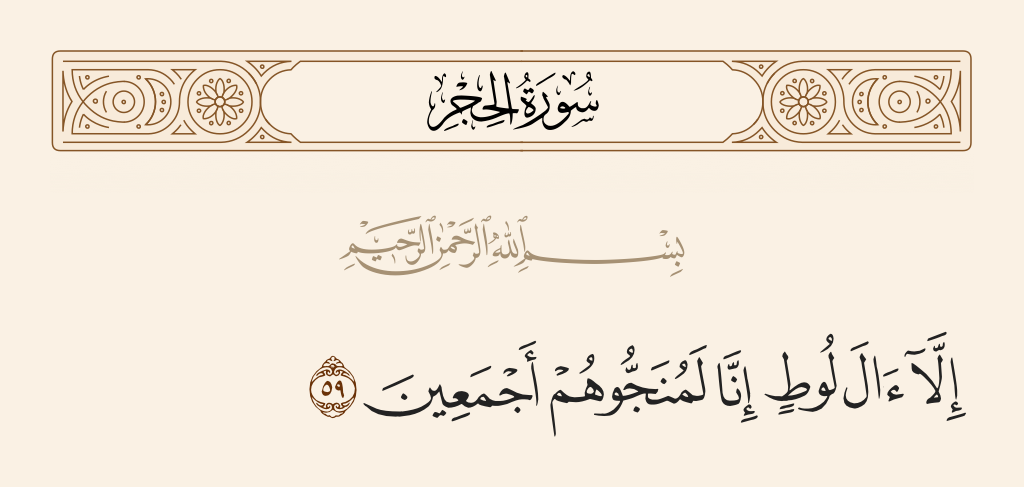 سُورَةُ الحِجْرِ
بِسْمِ ٱللَّهِ ٱلرَّحْمَٰنِ ٱلرَّحِيمِ
إِلَّآ ءَالَ لُوطٍ إِنَّا لَمُنَجُّوهُمْ أَجْمَعِينَ ٥٩